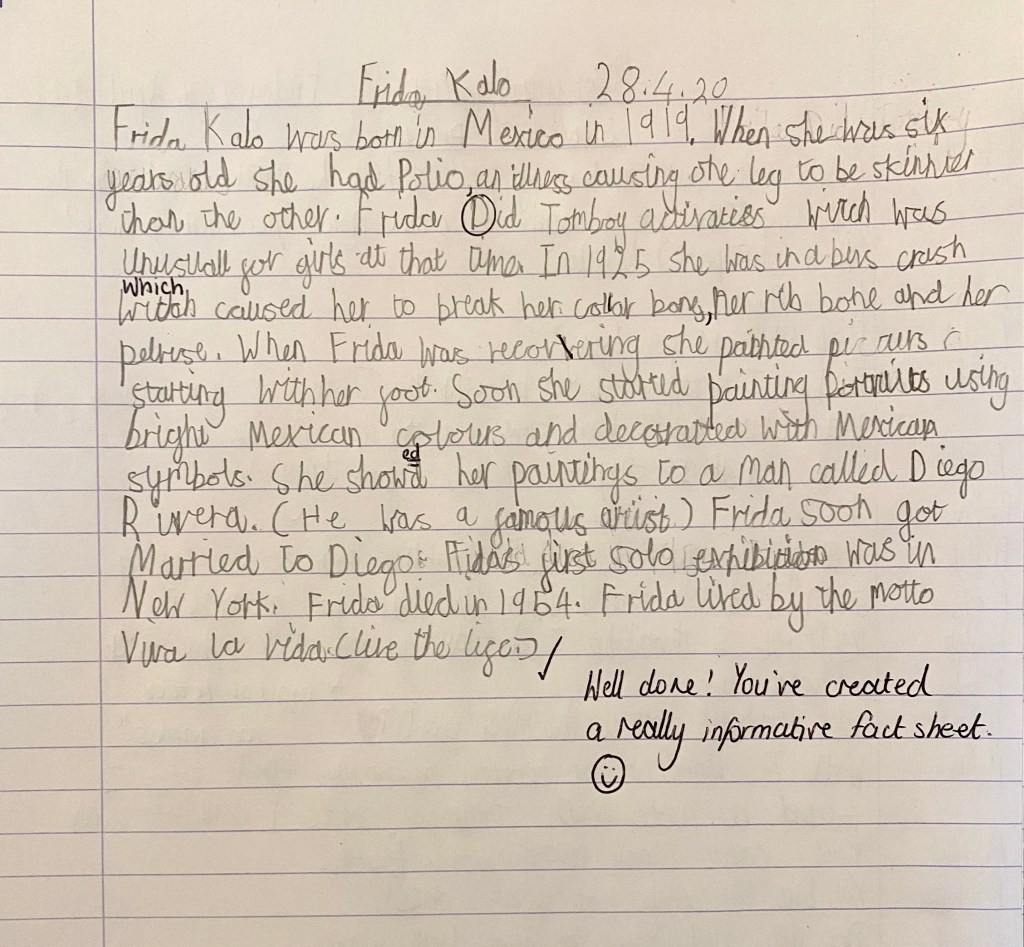 Frida Kalo 28.4.20
Frida Kalo was born in Mexico in 1919. When she was six
years old she had Polio, an illness causing one leg to be skinnier
than the other. Frida Did Tomboy activaties witch was
Unusuall for girls at that time. In 1925 she was in a bus crash
which
witch caused her to break her collar bone, her rib bone and her
pelruse. When Frida was recorvering she painted
starting with her foot. Soon she started painting portraits using
bright Mexican colours and decoratted with Mexican
ed
symbols. She showd her paintings to a man called Diego
Rivera. (He was a famous artist.) Frida soon got
Married to Diego. Fridas first solo exhibition was in
New York. Frida died in 1954. Frida lived by the motto
Viva la vida. (live the life.)
Well done! You've created
a really informative fact sheet.